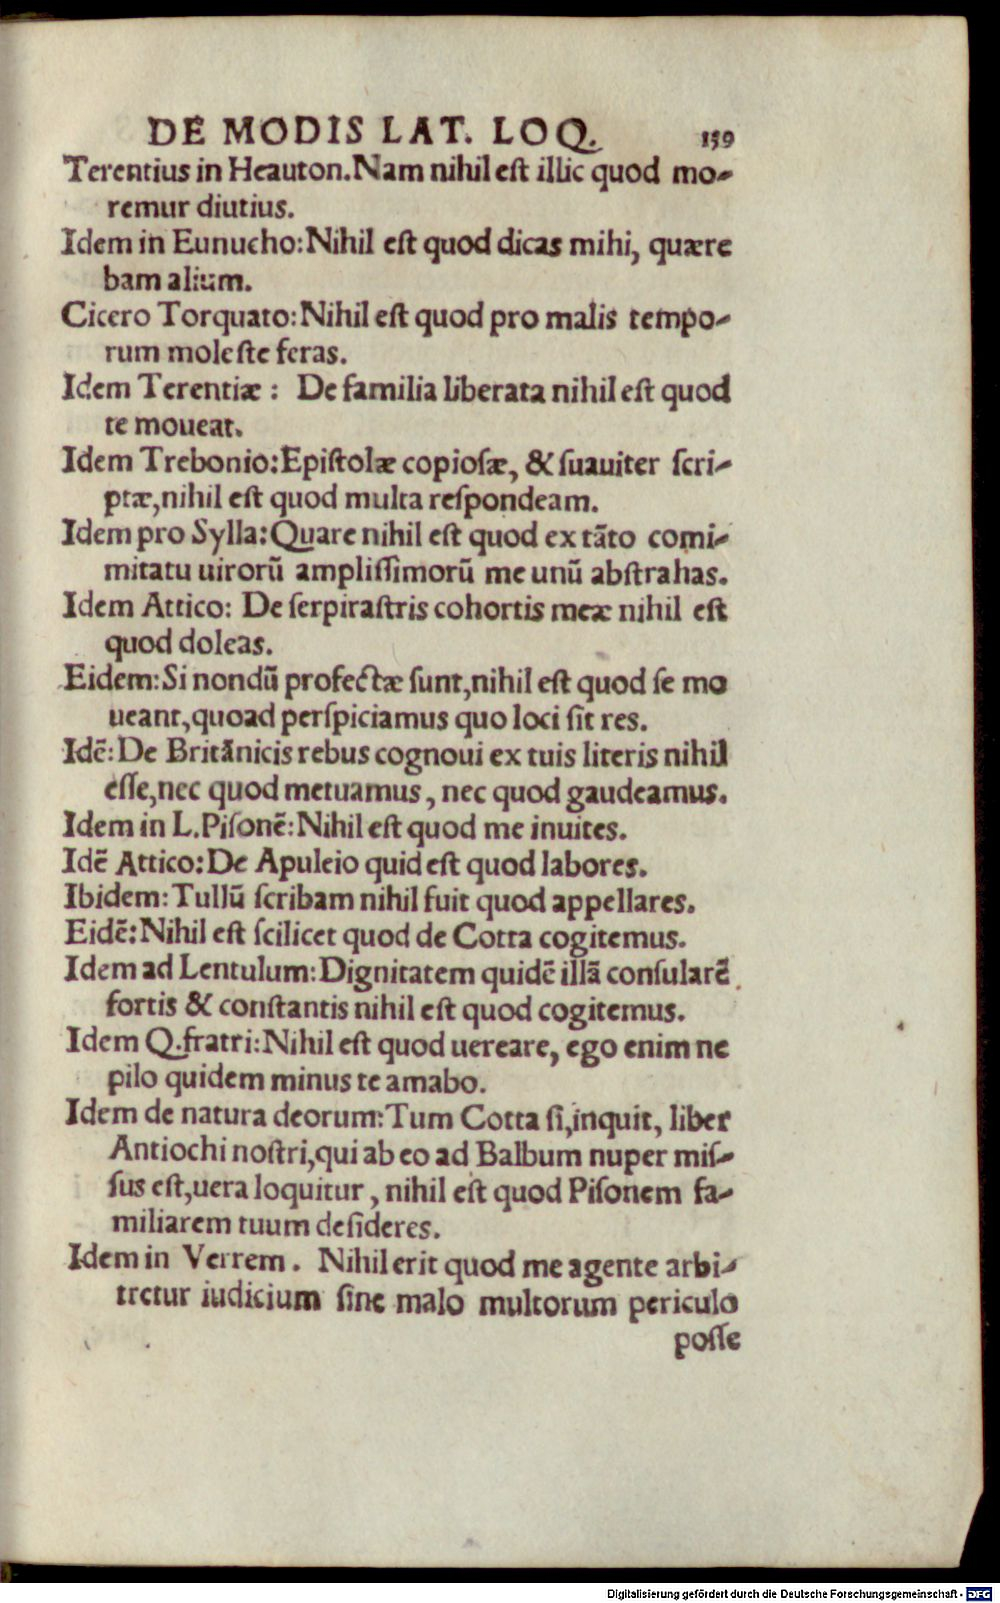 DE MODIS LAT. LOQ. 159
Terentius in Heauton.Nam nihil est illic quod mo-
remur diutius.
Idem in Eunucho:Nihil est quod dicas mihi, quære
bam alium.
Cicero Torquato:Nihil est quod pro malis tempo-
rum moleste feras.
Idem Terentiæ : De familia liberata nihil est quod
te moueat.
Idem Trebonio:Epistolæ copiosæ, & suauiter scri-
ptæ,nihil est quod multa respondeam.
Idem pro Sylla:Quare nihil est quod ex tãto comi-
mitatu uirorũ amplissimorũ me unũ abstrahas.
Idem Attico: De serpirastris cohortis meæ nihil est
quod doleas.
Eidem:Si nondũ profectæ sunt,nihil est quod se mo
ueant,quoad perspiciamus quo loci sit res.
Idẽ:De Britãnicis rebus cognoui ex tuis literis nihil
esse,nec quod metuamus, nec quod gaudeamus.
Idem in L.Pisonẽ:Nihil est quod me inuites.
Idẽ Attico:De Apuleio quid est quod labores.
Ibidem:Tullũ scribam nihil fuit quod appellares.
Eidẽ:Nihil est scilicet quod de Cotta cogitemus.
Idem ad Lentulum:Dignitatem quidẽ illã consularẽ
fortis & constantis nihil est quod cogitemus.
Idem Q.fratri:Nihil est quod uereare, ego enim ne
pilo quidem minus te amabo.
Idem de natura deorum:Tum Cotta si,inquit, liber
Antiochi nostri,qui ab eo ad Balbum nuper mis-
sus est,uera loquitur, nihil est quod Pisonem fa-
miliarem tuum desideres.
Idem in Verrem. Nihil erit quod me agente arbi-
tretur iudicium sine malo multorum periculo
posse
Digitalisierung gefördert durch die Deutsche Forschungsgemeinschaft - DFG